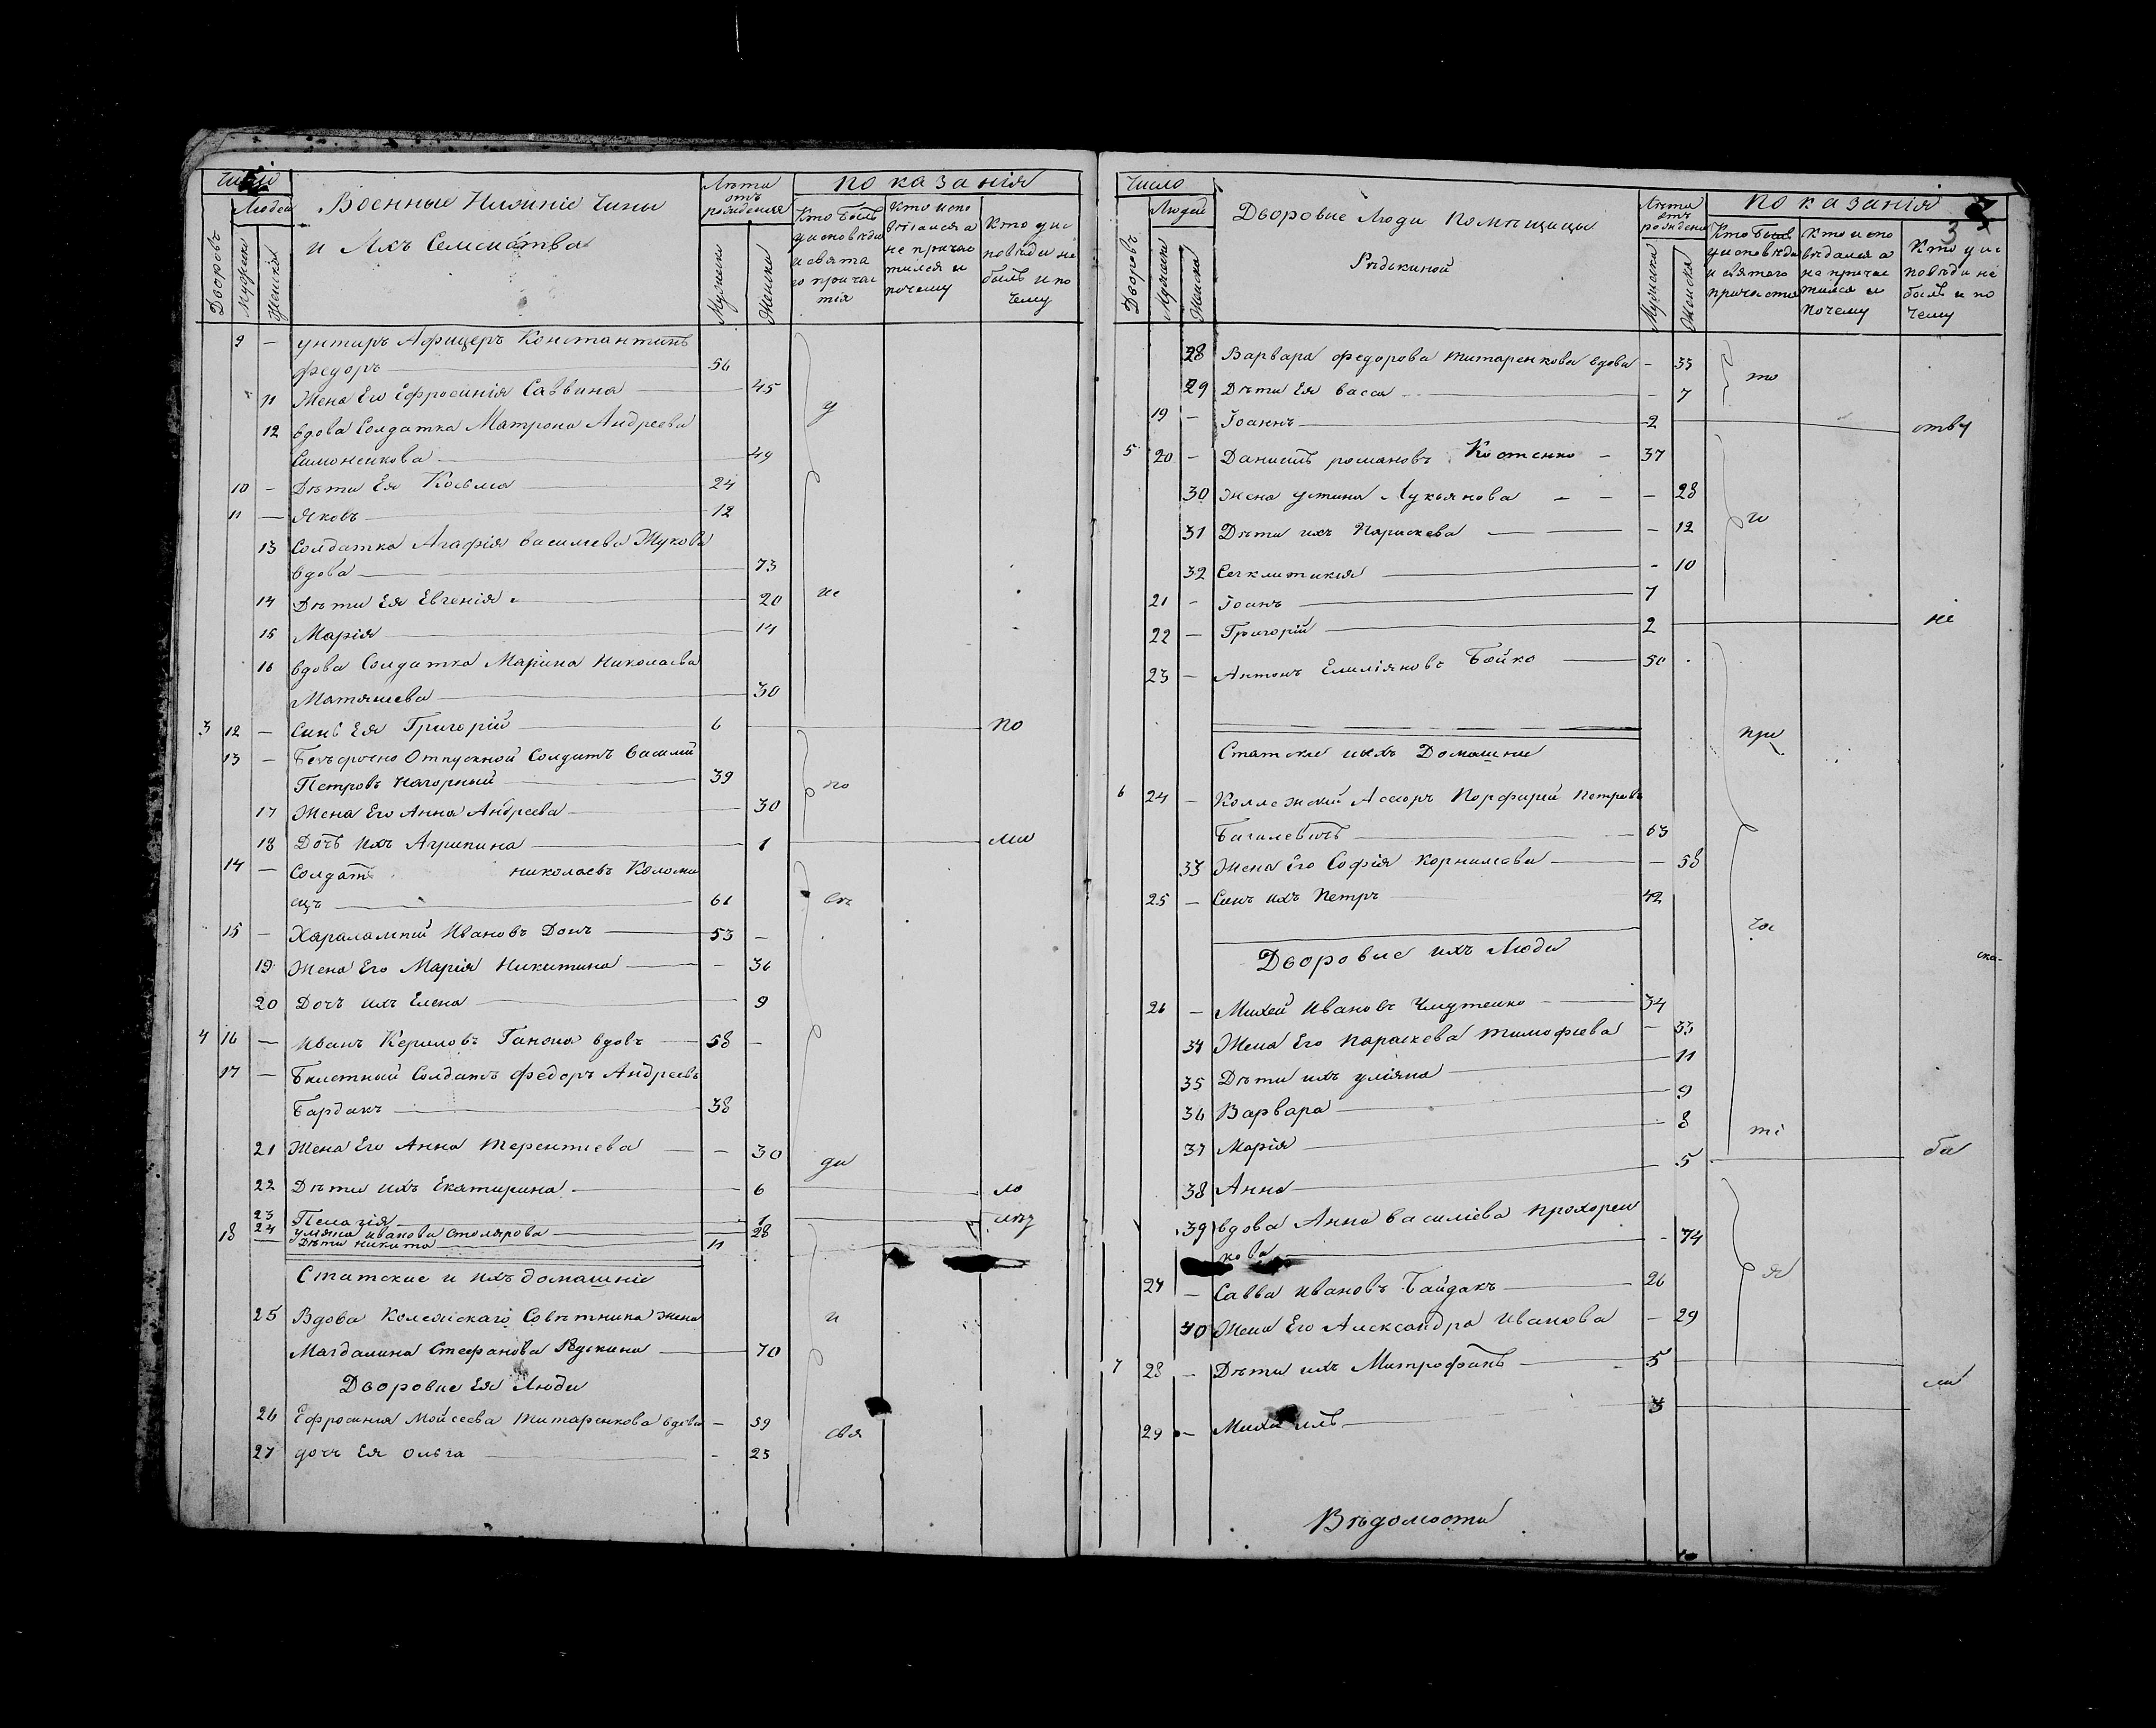 Число
Людей
Дворовъ
Мужска
Женска
Военные Нижнie Чины
и Ихъ Семейства
Лѣта
отъ
рождения
Мужска
Женска
показанiя
Кто былъ
у исповѣди
и свята
го причас
тiя
Кто испо
вѣдался а
не причас
тился и
почему
Кто у ис
повѣди не
былъ и по
чему
9 — унтиръ Афицеръ Константинъ
федоръ 56
11 Жена Его Ефросинiя Саввина 45
у
12 вдова Солдатка Матрона Андреева
Симоненкова 49
10 — Дѣти Ея Косьма 24
11 — Яковъ 12
13 Солдатка Агафiя васильева Жукова
вдова 73
14 Дѣти Ея Евгенiя 20
ис
15 Марiя 14
16 вдова Солдатка Марина Николаева
Матяшева 30
3 12 — Синъ Ея Григорiй 6 по
13 — Безсрочно Отпускной Солдатъ Василий
Петровъ Нагорный 39
по
17 Жена Его Анна Андреева 30
18 Дочь Ихъ Агрипина 1 мл
14 — Солдатъ николаевъ Коломи
ецъ 61
вѣ
15 — Харалампий Ивановъ Донъ 53 —
19 Жена Его Марiя Никитина — 36
20 Дочъ ихъ Елена 9
4 16 — Иванъ Кериловъ Ганоша вдовъ 58 —
17 — Билетный Солдатъ Федоръ Андреевъ
Бардакъ 38
21 Жена Его Анна Терентиева — 30
ди
22 Дѣти ихъ Екатирина 6 ло
23 Пелагiя 1
24 улiяна Иванова Столярова 28
18 — Дѣти Никита 11
Статские и ихъ домашнiе
25 Вдова Колежскаго Совѣтника жена
и
Магдалина Стефанова Редкина 70
Дворовые Ея Люди
26 Ефросиния Мойсеева Титаренкова вдова — 59
свя
27 дочъ Ея Ольга — 25
Число
Людей
Дворовъ
Мужска
Женска
Дворовые Люди Помѣщицы
Рѣдькиной
Лѣта
отъ
рождения
Мужска
Женска
показанiя
3
Кто былъ
у исповѣди
и святаго
причастия
Кто испо
вѣдался а
не причас
тился и
почему
Кто у ис
повѣди не
былъ и по
чему
28 Варвара федорова титаренкова вдова — 33
то
29 Дѣти Ея васса — 7
19 — Iоаннъ 2 отву
5 20 — Даниилъ романовъ Костенко — 37
30 жена устина Лукьянова — 28
го
31 Дѣти ихъ Параскева — 12
32 Сегклитикия — 10
21 — Iоанъ 7
22 — Григорiй 2 не
23 — Антонъ Емилiяновъ Бойко 50
при
Статские ихъ Домашние
6 24 — Коллежский Асесоръ Порфирий Петровъ
Багалевичъ 63
33 Жена Его София Корнилова — 58
25 — Синъ ихъ Петръ 42
ча
Дворовые ихъ Люди
26 — Михей Ивановъ Чмутенко 34
34 Жена Его Параскева тимофiева — 33
35 Дѣти ихъ улiяна 11
36 Варвара 9
37 Марiя 8
ті
38 Анна 5 бы
39 вдова Анна василiева прохорен
кова — 74
я
27 — Савва Ивановъ Байдакъ 26
40 Жена Его Александра Иванова — 29
7 28 — Дѣти ихъ Митрофанъ 5
ли
29 — Михаилъ 3
Вѣдомости